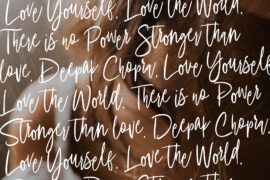 Love Yourself. Love the World.
There is no Power Stronger than
love. Deepak Chopra. Love Yourself
Love the World. There is no Power
Stronger than love. Deepak Chopra.
Love Yourself. Love the World.
There is no Power Stronger than